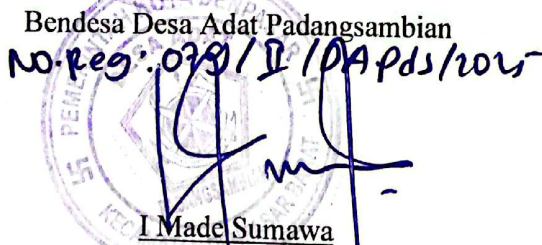 Bendesa Desa Adat Padangsambian
No.Reg: 079/II/DAPdS/2025
I Made Sumawa